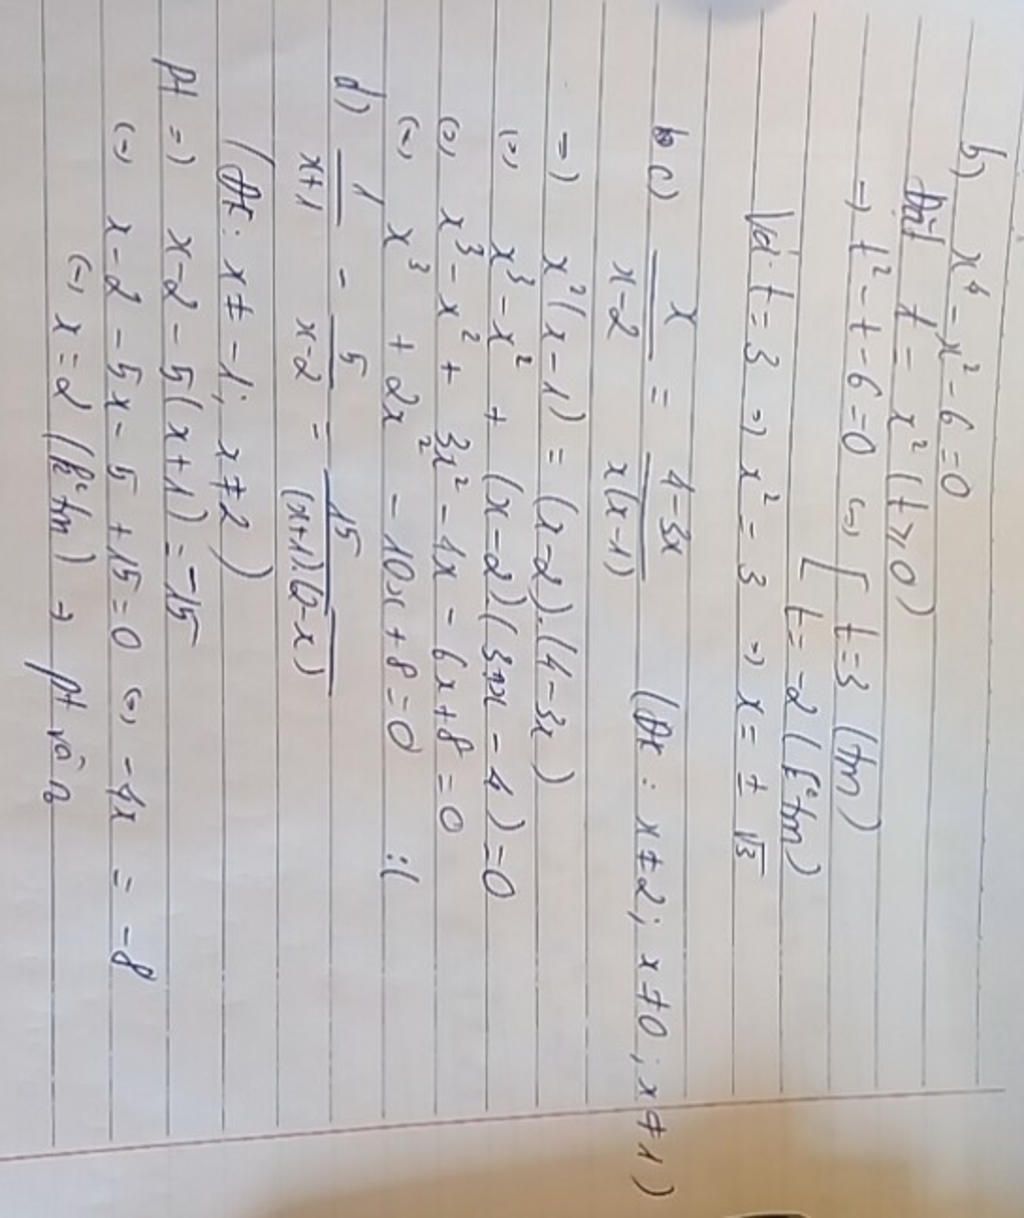 b) x⁴ - x² - 6 = 0
Đặt t = x² (t ≥ 0)
→ t² - t - 6 = 0 (=) [ t = 3 (tm)
t = -2 (k° tm)
Với t = 3 => x² = 3 => x = ± √3
c) x/(x-2) = (4-3x)/(x(x-1)) (Đk: x ≠ 2; x ≠ 0; x ≠ 1)
=) x²(x-1) = (x-2).(4-3x)
(=) x³ - x² + (x-2)(3x - 4) = 0
(=) x³ - x² + 3x² - 4x - 6x + 8 = 0
(=) x³ + 2x² - 10x + 8 = 0 :(
d) 1/(x+1) - 5/(x-2) = 15/((x+1).(2-x))
(Đk: x ≠ -1; x ≠ 2)
Pt =) x - 2 - 5(x+1) = -15
(=) x - 2 - 5x - 5 + 15 = 0 (=) -4x = -8
(=) x = 2 (k° tm) → pt vô n₀